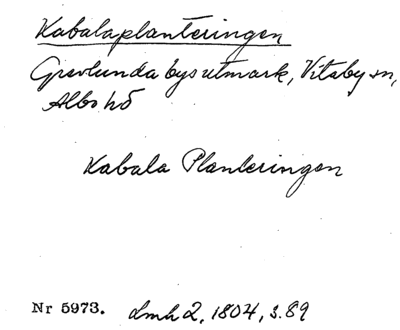 Kabalaplanteringen
Gravlunda bys utmark, Vitaby sn,
Albo hd
Kabala Planteringen
Nr 5973. Lmh 2, 1804, s. 89